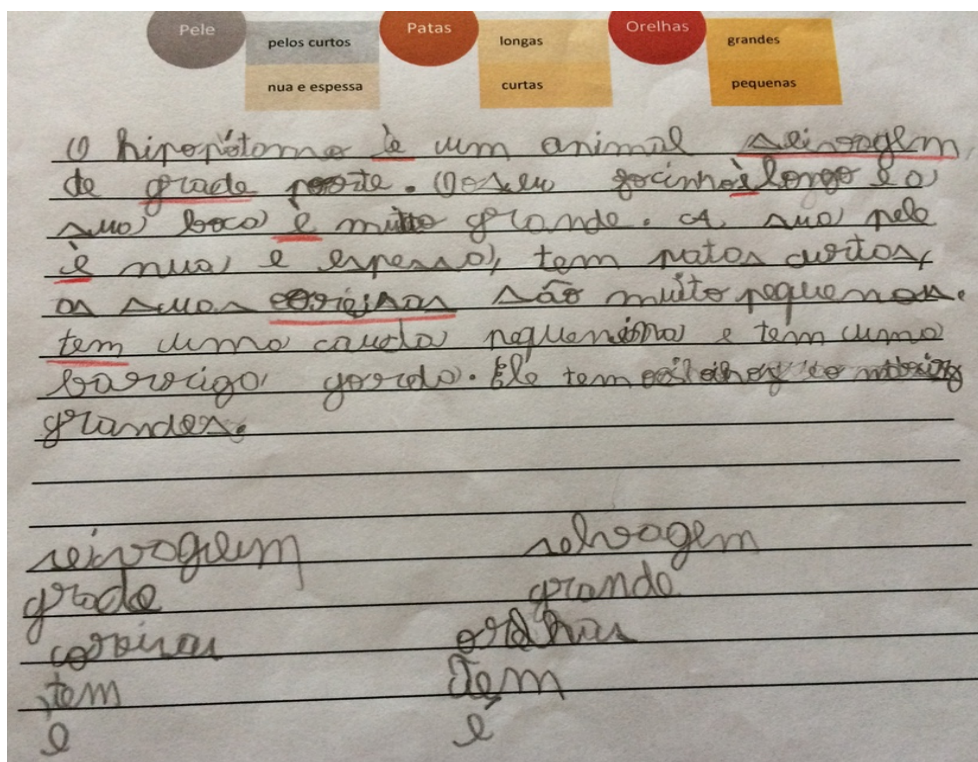 Pele
pelos curtos
nua e espessa
Patas
longas
curtas
Orelhas
grandes
pequenas
O hipopótamo è um animal seivagem
de grade porte. O seu focinho è longo e a
sua boca e muito grande. A sua pele
è nua e espessa, tem patas curtas,
as suas são muito pequenas.
tem uma cauda pequenina e tem uma
barriga gorda. Ele tem
grandes.
seivagem selvagem
grade grande
orelhas
tem Tem
e é